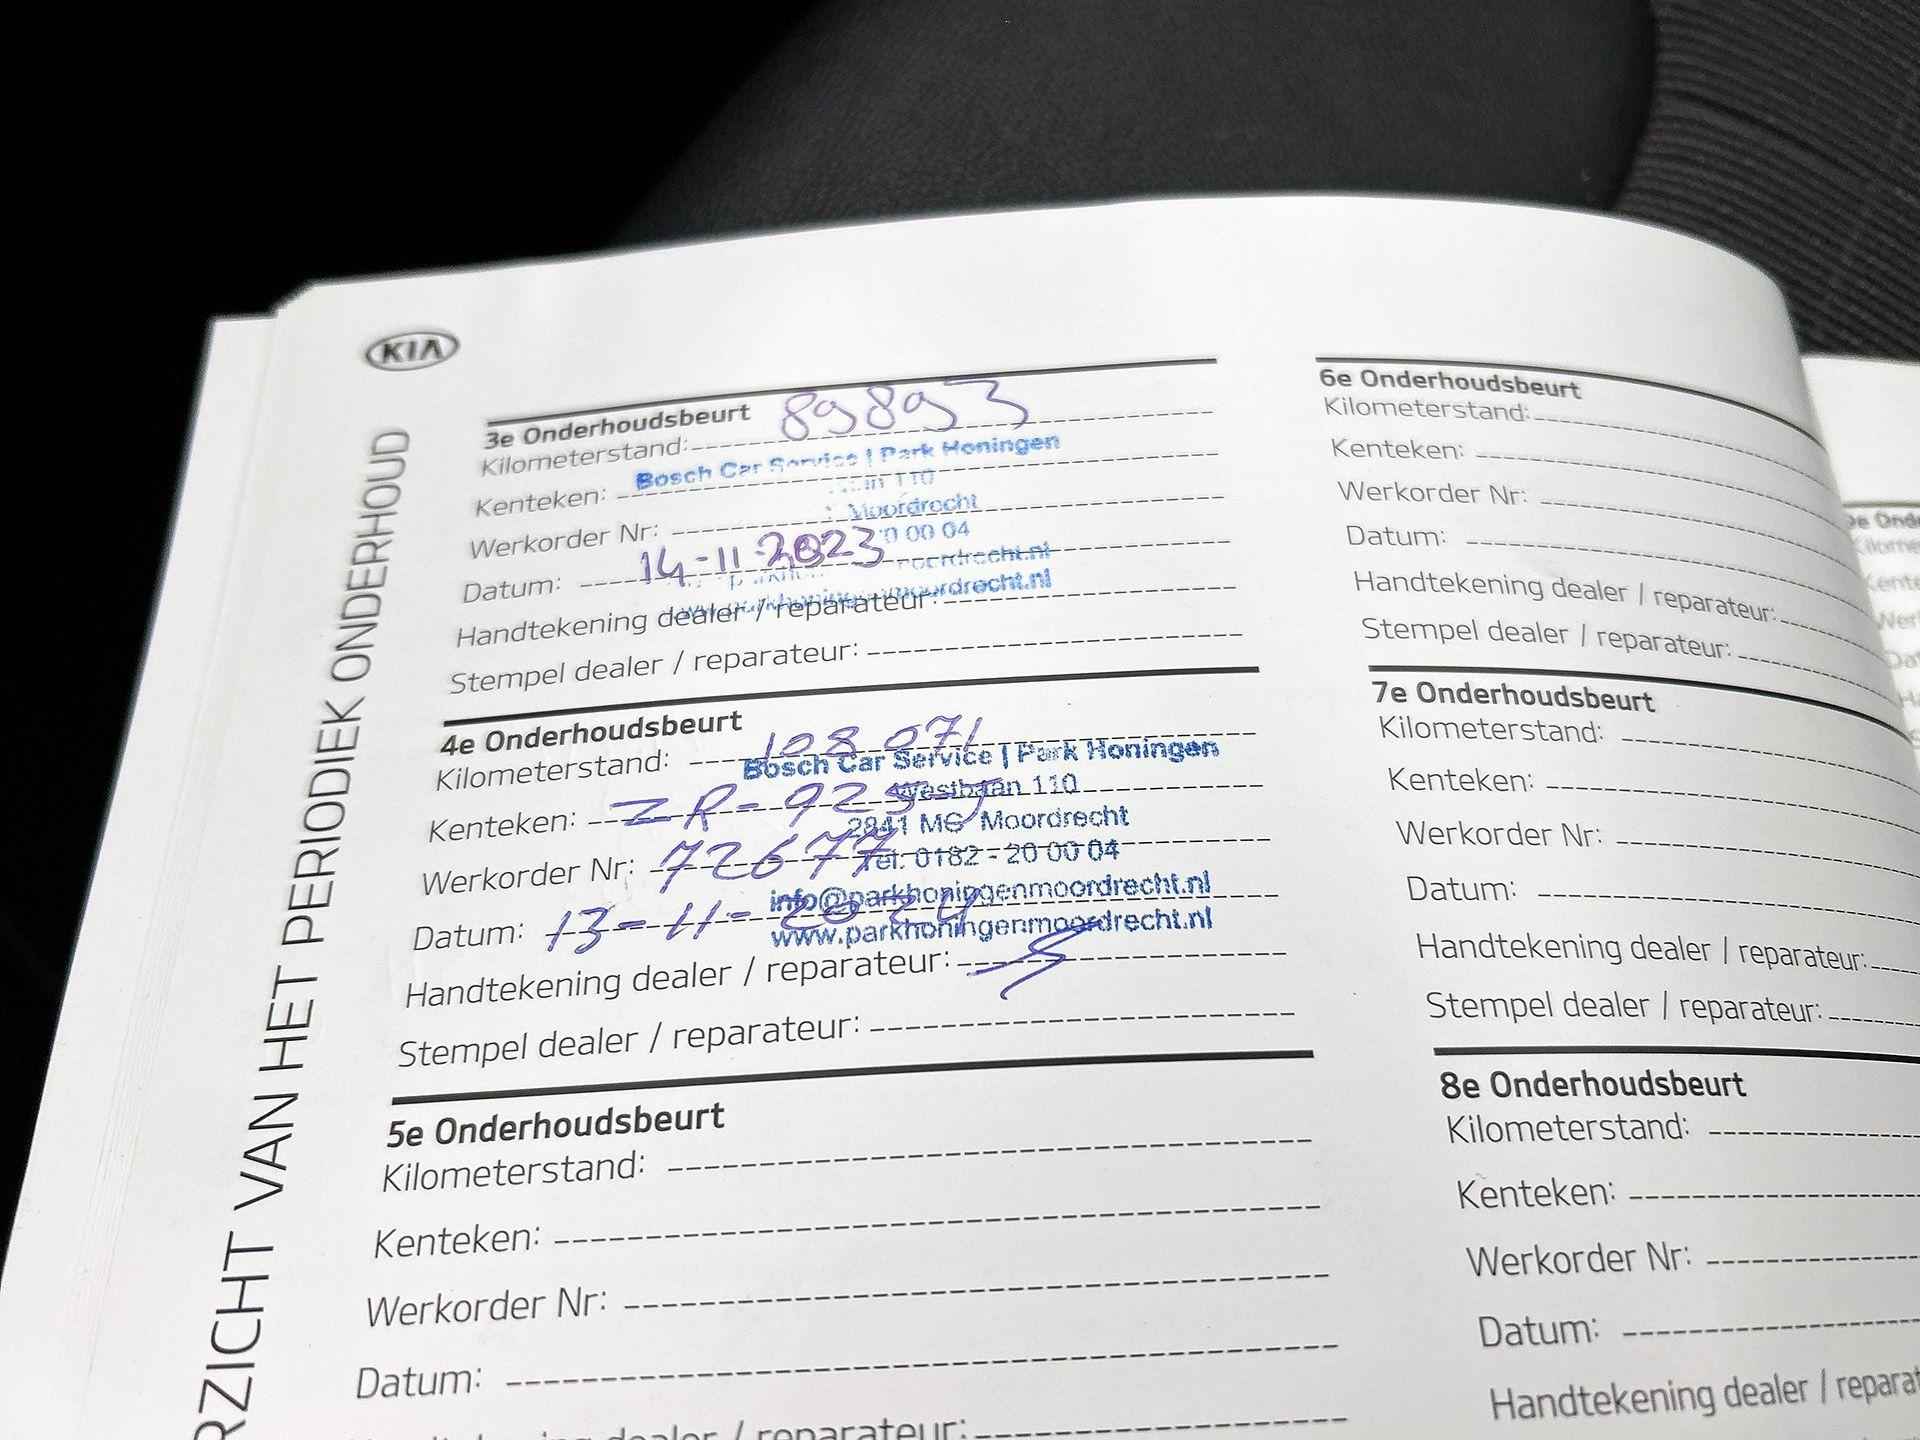 KIA
RZICHT VAN HET PERIODIEK ONDERHOUD
3e Onderhoudsbeurt
Kilometerstand: 89893
Bosch Car Service | Park Honingen
Kenteken:
110
Moordrecht
Werkorder Nr:
0 00 04
Datum: 14-11-2023
oordrecht.nl
www.parkhoningenmoordrecht.nl
Handtekening dealer / reparateur:
Stempel dealer / reparateur:
4e Onderhoudsbeurt
Kilometerstand: 108 071
Bosch Car Service | Park Honingen
Westbaan 110
Kenteken: ZR-925-J
2841 MC Moordrecht
Werkorder Nr: 72677
Tel: 0182 - 20 00 04
info@parkhoningenmoordrecht.nl
Datum: 13-11-2024
www.parkhoningenmoordrecht.nl
Handtekening dealer / reparateur:
Stempel dealer / reparateur:
5e Onderhoudsbeurt
Kilometerstand:
Kenteken:
Werkorder Nr:
Datum:
dealer / reparateur:
6e Onderhoudsbeurt
Kilometerstand:
Kenteken:
Werkorder Nr:
Datum:
Handtekening dealer / reparateur:
Stempel dealer / reparateur:
7e Onderhoudsbeurt
Kilometerstand:
Kenteken:
Werkorder Nr:
Datum:
Handtekening dealer / reparateur:
Stempel dealer / reparateur:
8e Onderhoudsbeurt
Kilometerstand:
Kenteken:
Werkorder Nr:
Datum:
Handtekening dealer / reparat